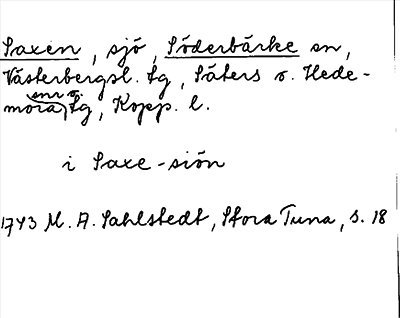 Saxen, sjö, Söderbärke sn,
Västerbergsl. tg, Säters o. Hede-
mora snr o. tg, Kopp. l.
i Saxe-siön
1743 M. A. Sahlstedt, Stora Tuna, s. 18